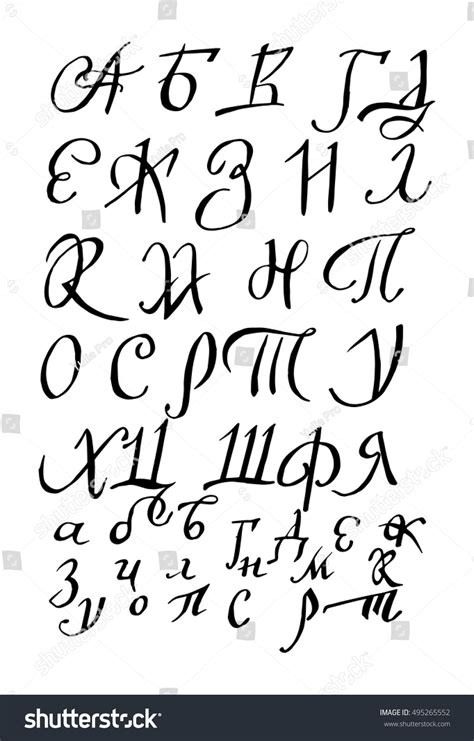 А Б В Г Д
Е Ж З И Л
К М Н П
О С Р Т У
Х Ц Ш Ф Я
а б в Г Д Е Ж
З и л н м К
у о п с р т
shutterstock
IMAGE ID: 495265552
www.shutterstock.com